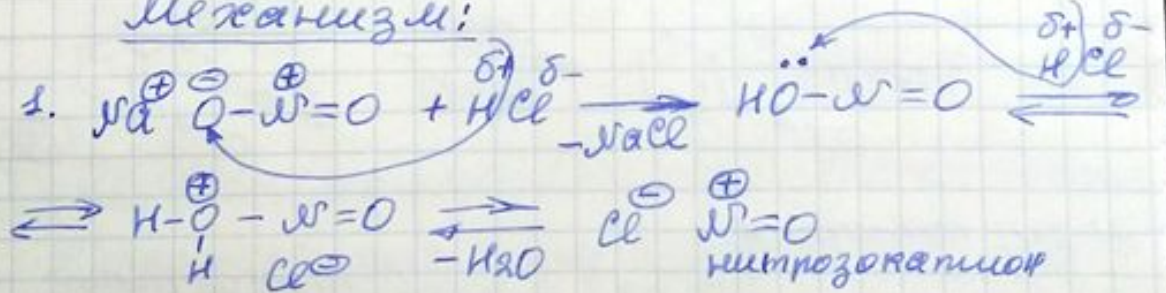 Механизм:
1. Na⊕ O⊖–N⊕=O + Hδ+Clδ– → –NaCl HÖ–N=O Hδ+Clδ– ⇌
⇌ H–O⊕(H)–N=O Cl⊖ ⇌ –H2O Cl⊖ N⊕=O
нитрозокатион